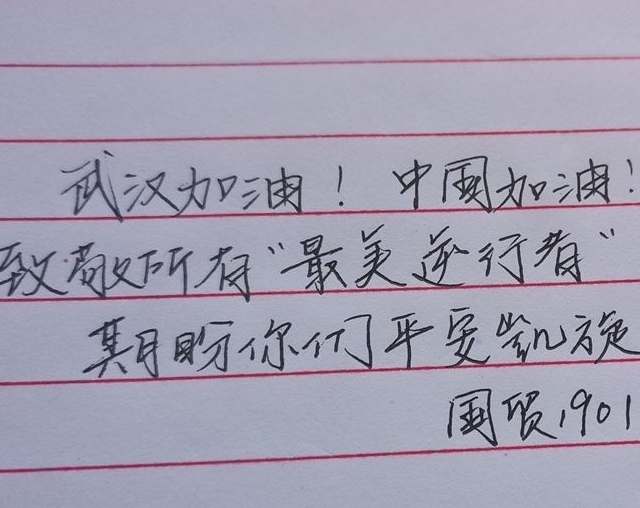 武汉加油！ 中国加油！
致敬所有“最美逆行者”
期盼你们平安凯旋
国贸1901